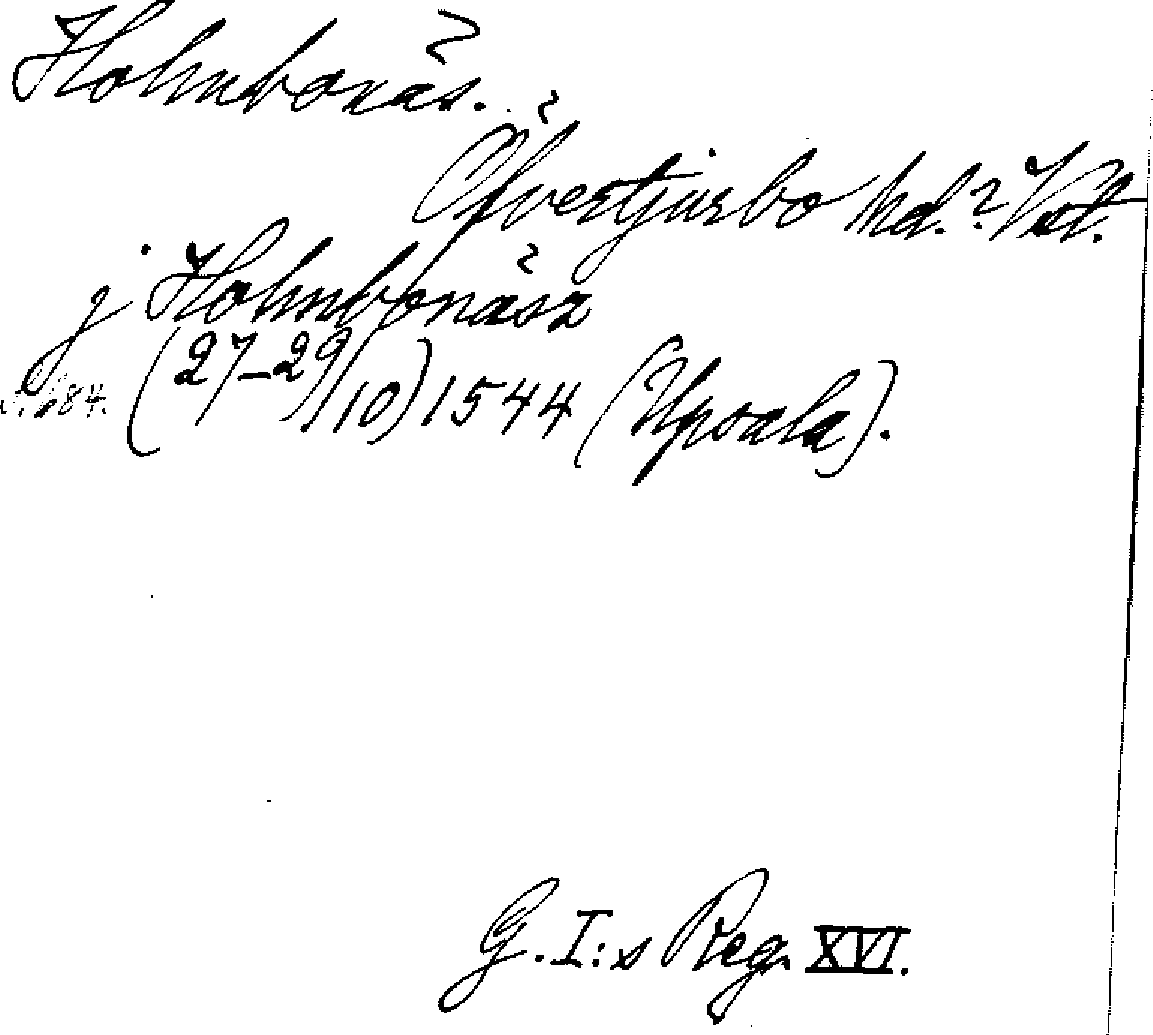 Holmbonäs.
Öfvertjurbo hd.? Vstm.
j Holmbonäsz
s. 684. (27-29/10) 1544 (Upsala).
G. I:s Reg. XVI.